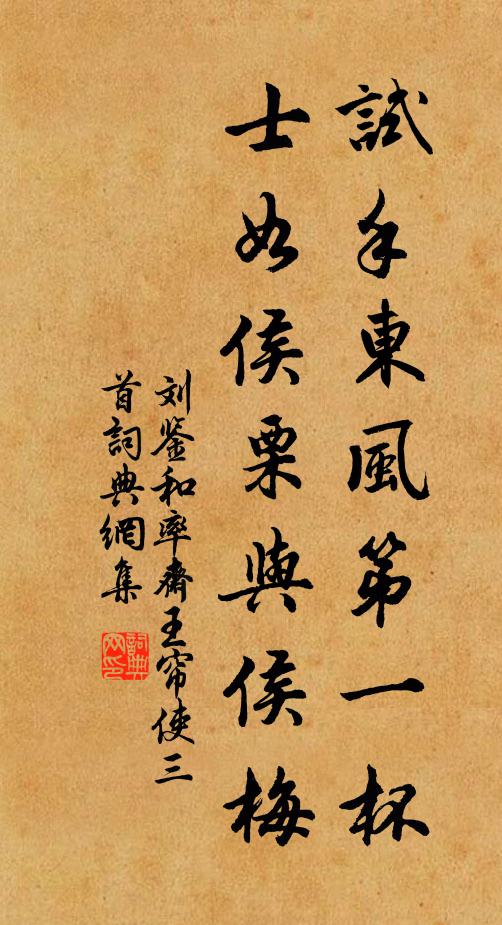 試手東風第一杯
士如侯栗與侯梅
刘鉴和率齋王帘使三
首詞典網集
詞典網印